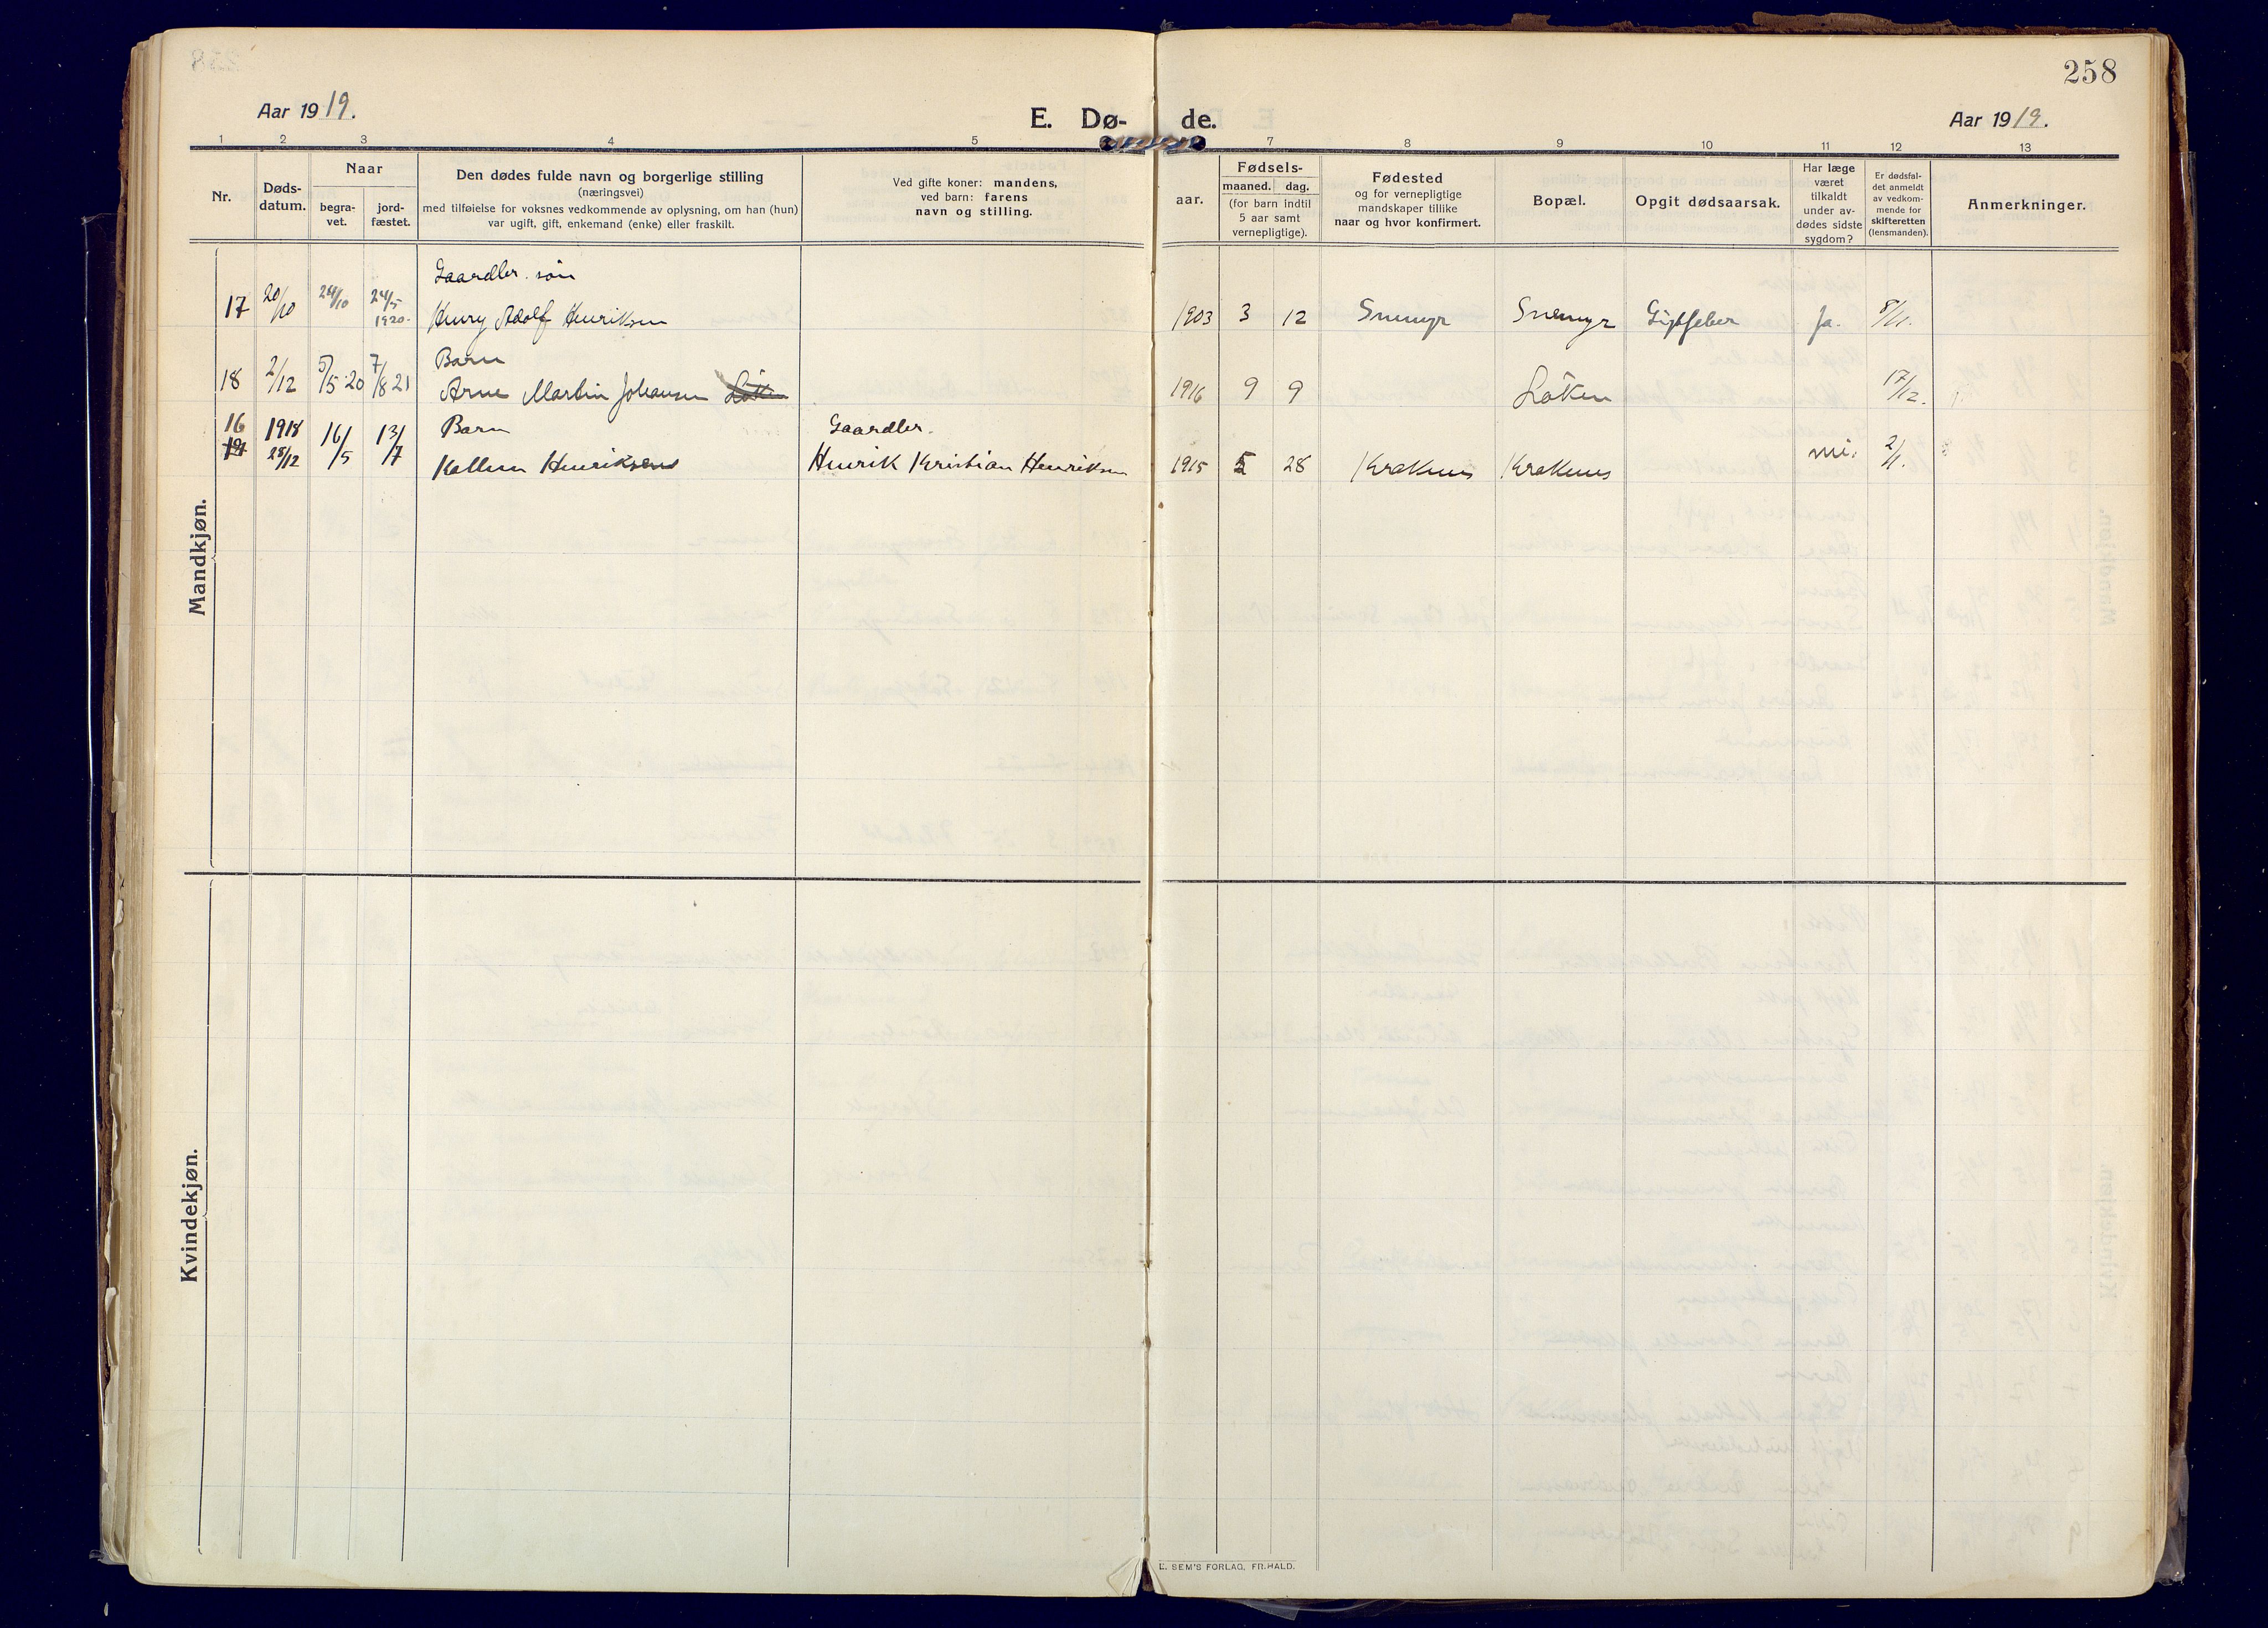 258
Aar 1919.
E. Døde.
Aar 1919.
1 2 3 4 5 7 8 9 10 11 12 13
Nr.
Døds-
datum.
Naar
begra-
vet.
jord-
fæstet.
Den dødes fulde navn og borgerlige stilling
(næringsvei)
med tilføielse for voksnes vedkommende av oplysning, om han (hun)
var ugift, gift, enkemand (enke) eller fraskilt.
Ved gifte koner: mandens,
ved barn: farens
navn og stilling.
aar.
Fødsels-
maaned. dag.
(for barn indtil
5 aar samt
vernepligtige).
Fødested
og for vernepligtige
mandskaper tillike
naar og hvor konfirmert.
Bopæl.
Opgit dødsaarsak.
Har læge
været
tilkaldt
under av-
dødes sidste
sygdom?
Er dødsfal-
det anmeldt
av vedkom-
mende for
skifteretten
(lensmanden).
Anmerkninger.
Mandkjøn.
Gaardbr. søn
17 20/10 24/10 24/5 1920. Henry Adolf Henriksen 1903 3 12 Snemyr Snemyr Gigtfeber Ja. 8/11.
Barn
18 2/12 5/5 20 7/8 21 Arne Martin Johansen Løken 1916 9 9 Løken 17/12.
16 1918 16/5 13/7 Barn Gaardbr.
19 28/12 Henriksen Henrik Kristian Henriksen 1915 5 28 Kraknes Kraknes 2/1.
Kvindekjøn.
E. SEM'S FORLAG, FR.HALD.